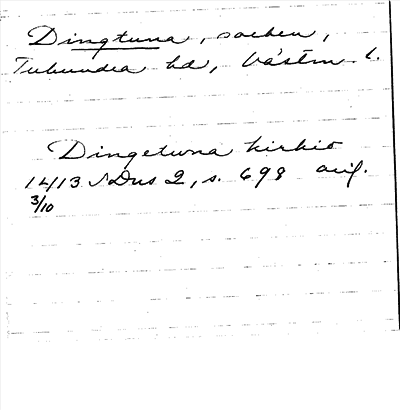 Dingtuna, socken,
Tuhundra hd, Västm l.
Dingetwna kirkio
1413 SDns 2, s. 698 avif.
3/10